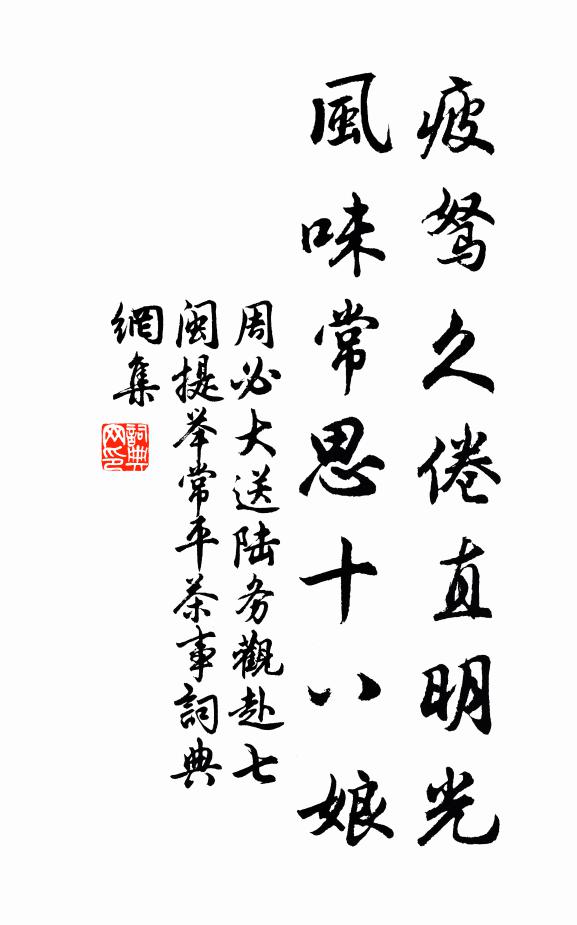 疲驽久倦直明光
風味常思十八娘
周必大送陆务觀赴七
閩提举常平茶事詞典
網集
詞典
网印